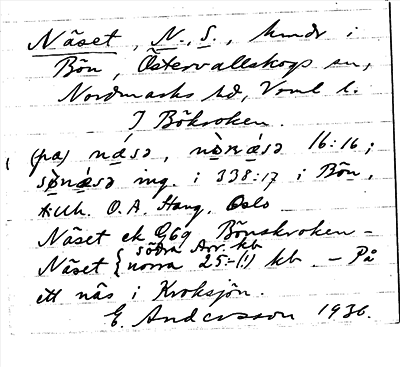 Näset, N., S., hmdr i
Bön, Östervallskogs sn,
Nordmarks hd, Vrml l.
I Böksoken.
(på) näsə, nòrnäsə 16:16;
sö̀näsə ing. i 338:17 i Bön,
tillh. O. A. Haug, Oslo
Näset ek G69 Bönskroken –
Näset { södra Arr. kb
norra 25:–(!) kb. – På
ett näs i Kroksjön.
E. Andersson 1936.